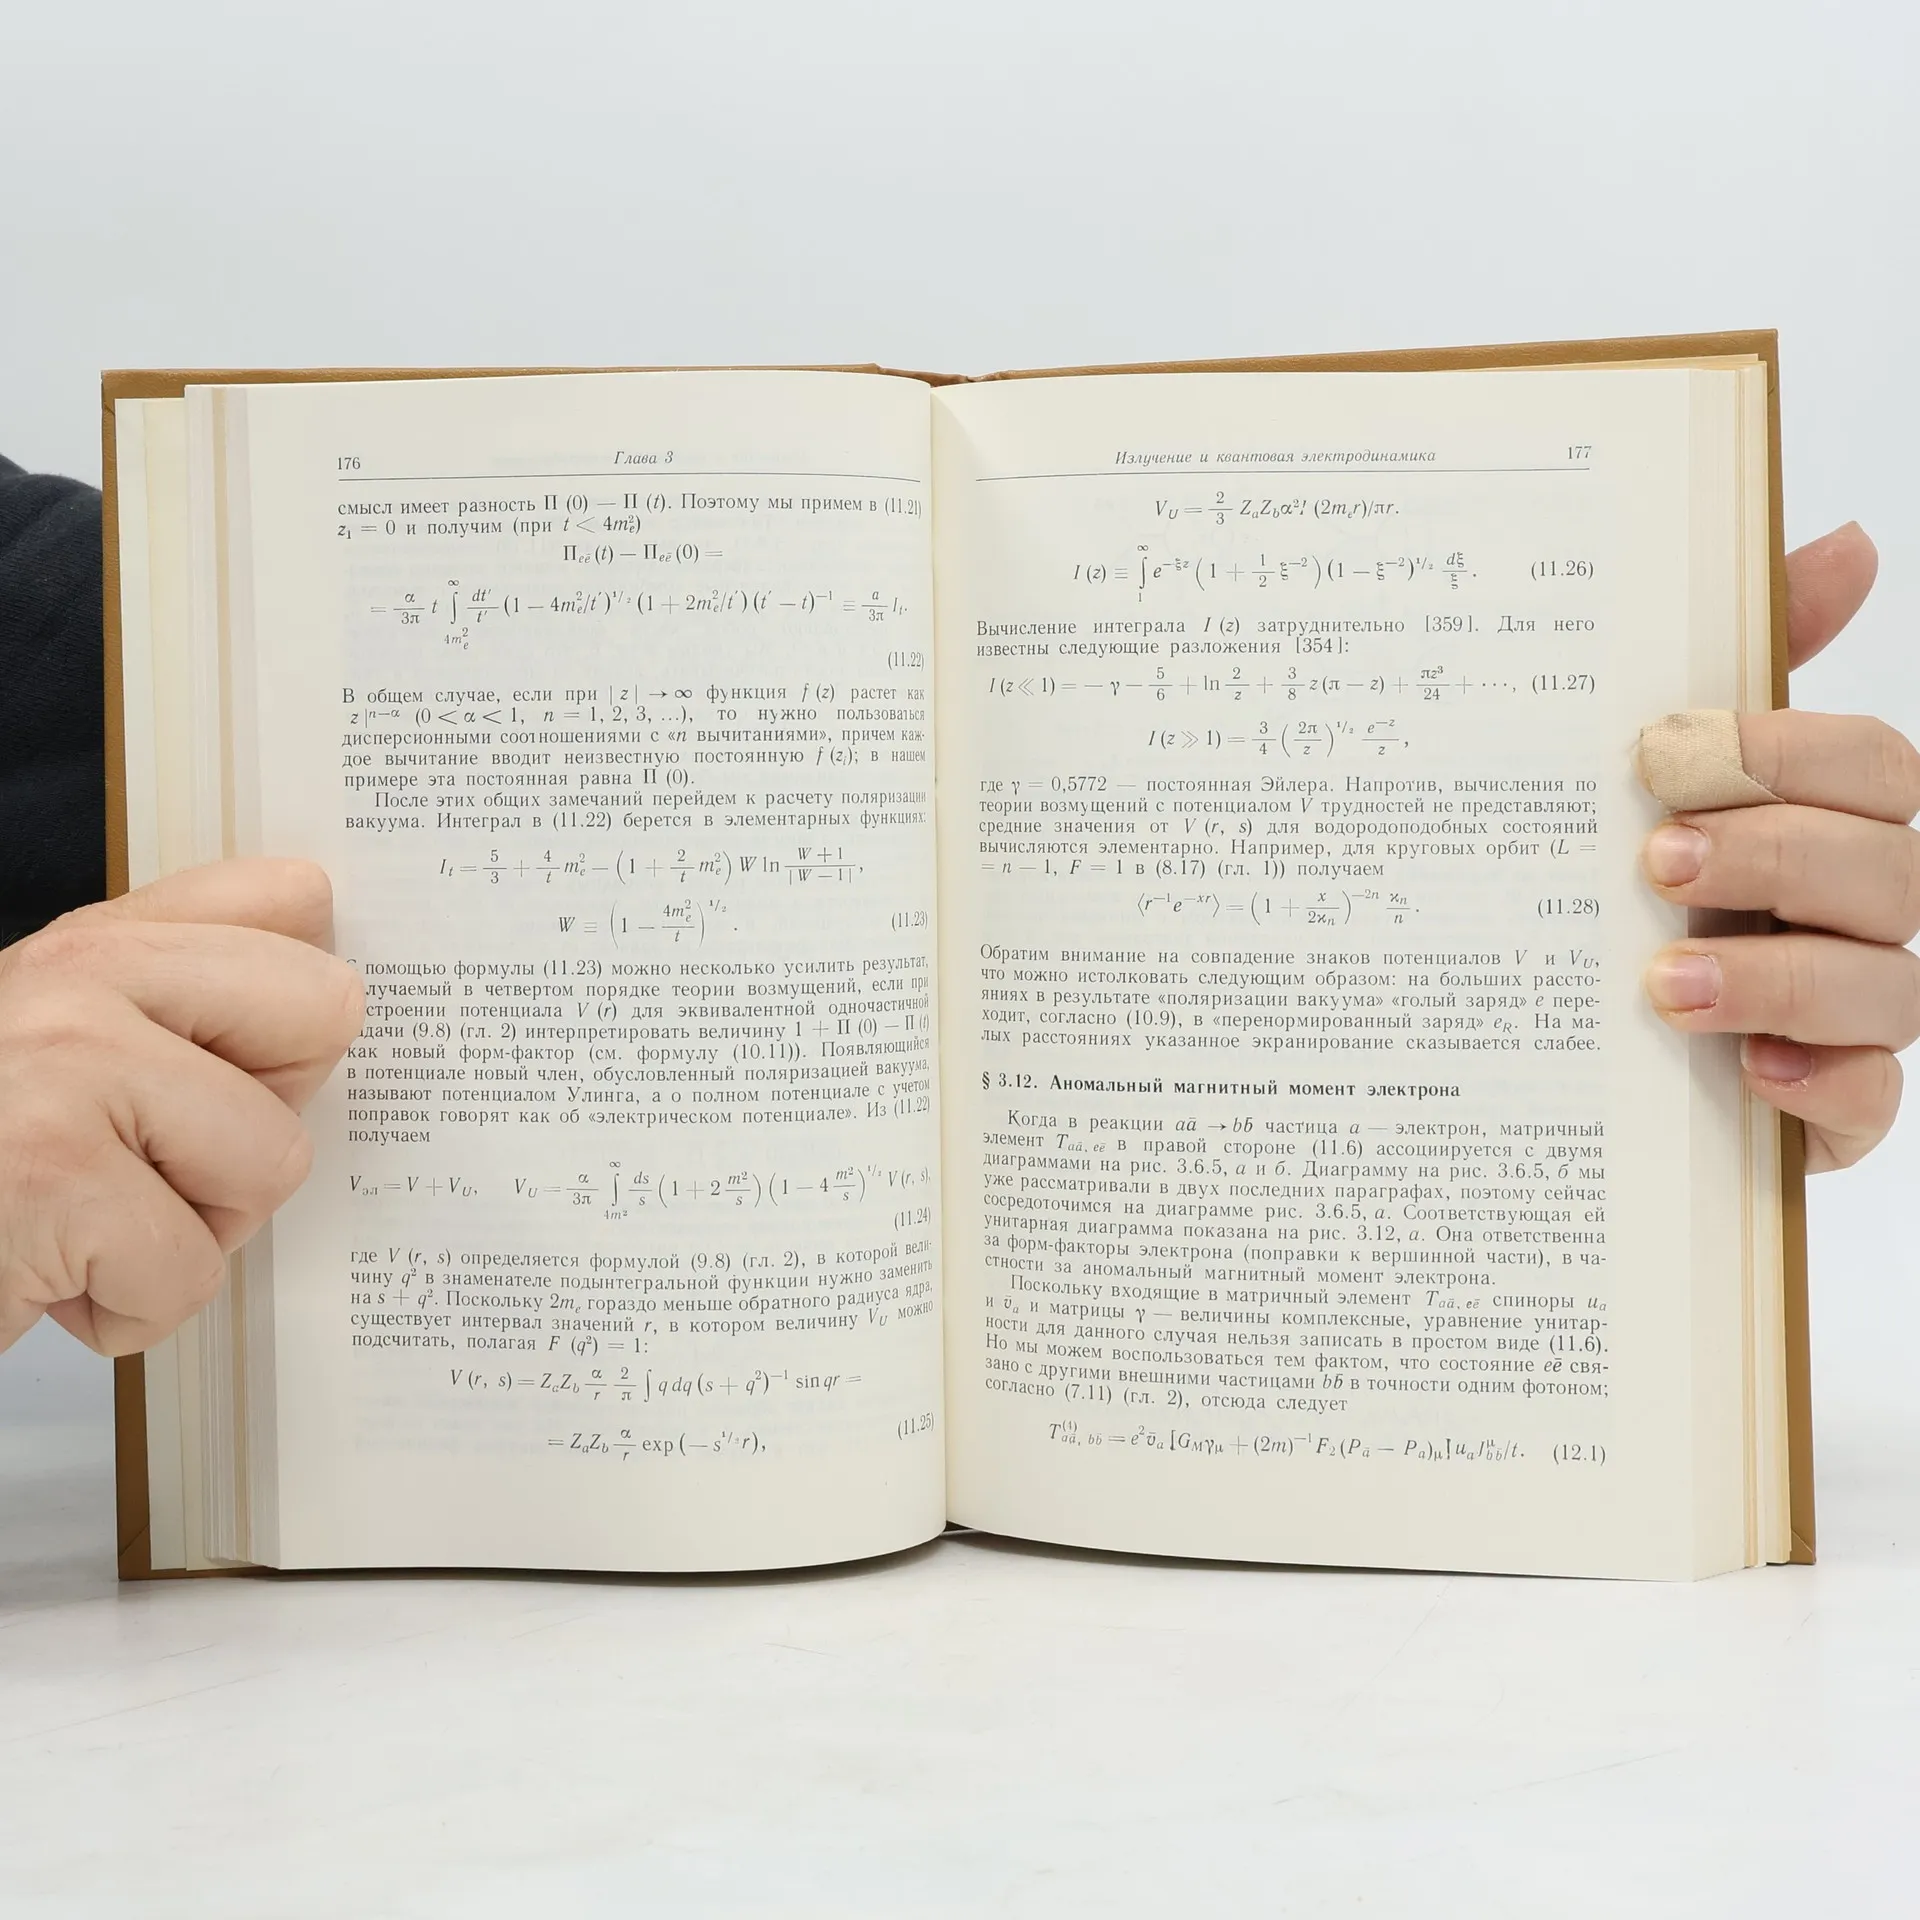 176
Глава 3
смысл имеет разность П (0) — П (t). Поэтому мы примем в (11.21)
z₁ = 0 и получим (при t < 4m²ₑ)
Пₑē (t) — Пₑē (0) =
= α/3π t ∫_{4m²ₑ}^{∞} dt′/t′ (1 — 4m²ₑ/t′)^{1/2} (1 + 2m²ₑ/t′) (t′ — t)⁻¹ ≡ a/3π Iₜ.
(11.22)
В общем случае, если при | z | → ∞ функция f (z) растет как
z |ⁿ⁻ᵅ (0 < α < 1, n = 1, 2, 3, ...), то нужно пользоваться
дисперсионными соотношениями с «n вычитаниями», причем каж-
дое вычитание вводит неизвестную постоянную f (zᵢ); в нашем
примере эта постоянная равна П (0).
После этих общих замечаний перейдем к расчету поляризации
вакуума. Интеграл в (11.22) берется в элементарных функциях:
Iₜ = 5/3 + 4/t m²ₑ — (1 + 2/t m²ₑ) W ln (W + 1)/| W — 1 |,
W ≡ (1 — 4m²ₑ/t)^{1/2}. (11.23)
помощью формулы (11.23) можно несколько усилить результат,
лучаемый в четвертом порядке теории возмущений, если при
строении потенциала V (r) для эквивалентной одночастичной
дачи (9.8) (гл. 2) интерпретировать величину 1 + П (0) — П (t)
как новый форм-фактор (см. формулу (10.11)). Появляющийся
в потенциале новый член, обусловленный поляризацией вакуума,
называют потенциалом Улинга, а о полном потенциале с учетом
поправок говорят как об «электрическом потенциале». Из (11.22)
получаем
Vэл = V + V_U, V_U = α/3π ∫_{4m²}^{∞} ds/s (1 + 2 m²/s) (1 — 4 m²/s)^{1/2} V (r, s),
(11.24)
где V (r, s) определяется формулой (9.8) (гл. 2), в которой вели-
чину q² в знаменателе подынтегральной функции нужно заменить
на s + q². Поскольку 2mₑ гораздо меньше обратного радиуса ядра,
существует интервал значений r, в котором величину V_U можно
подсчитать, полагая F (q²) = 1:
V (r, s) = ZₐZ_b α/r 2/π ∫ q dq (s + q²)⁻¹ sin qr =
= ZₐZ_b α/r exp (— s^{1/2} r), (11.25)
Излучение и квантовая электродинамика
177
V_U = 2/3 ZₐZ_bα²I (2mₑr)/πr.
I (z) ≡ ∫_{1}^{∞} e^{—ξz} (1 + 1/2 ξ⁻²) (1 — ξ⁻²)^{1/2} dξ/ξ. (11.26)
Вычисление интеграла I (z) затруднительно [359]. Для него
известны следующие разложения [354]:
I (z ≪ 1) = — γ — 5/6 + ln 2/z + 3/8 z (π — z) + πz³/24 + ···, (11.27)
I (z ≫ 1) = 3/4 (2π/z)^{1/2} e^{—z}/z,
где γ = 0,5772 — постоянная Эйлера. Напротив, вычисления по
теории возмущений с потенциалом V трудностей не представляют;
средние значения от V (r, s) для водородоподобных состояний
вычисляются элементарно. Например, для круговых орбит (L =
= n — 1, F = 1 в (8.17) (гл. 1)) получаем
⟨r⁻¹e^{—xr}⟩ = (1 + x/2ϰₙ)^{—2n} ϰₙ/n. (11.28)
Обратим внимание на совпадение знаков потенциалов V и V_U,
что можно истолковать следующим образом: на больших рассто-
яниях в результате «поляризации вакуума» «голый заряд» e пере-
ходит, согласно (10.9), в «перенормированный заряд» e_R. На ма-
лых расстояниях указанное экранирование сказывается слабее.
§ 3.12. Аномальный магнитный момент электрона
Когда в реакции aā → bb̄ частица a — электрон, матричный
элемент T_{aā, eē} в правой стороне (11.6) ассоциируется с двумя
диаграммами на рис. 3.6.5, а и б. Диаграмму на рис. 3.6.5, б мы
уже рассматривали в двух последних параграфах, поэтому сейчас
сосредоточимся на диаграмме рис. 3.6.5, а. Соответствующая ей
унитарная диаграмма показана на рис. 3.12, а. Она ответственна
за форм-факторы электрона (поправки к вершинной части), в ча-
стности за аномальный магнитный момент электрона.
Поскольку входящие в матричный элемент T_{aā, eē} спиноры uₐ
и v̄ₐ и матрицы γ — величины комплексные, уравнение унитар-
ности для данного случая нельзя записать в простом виде (11.6).
Но мы можем воспользоваться тем фактом, что состояние eē свя-
зано с другими внешними частицами bb̄ в точности одним фотоном;
согласно (7.11) (гл. 2), отсюда следует
T^{(4)}_{aā, bb̄} = e²v̄ₐ [G_Mγ_μ + (2m)⁻¹ F₂ (P_ā — P_a)_μ] uₐJ^μ_{bb̄}/t. (12.1)